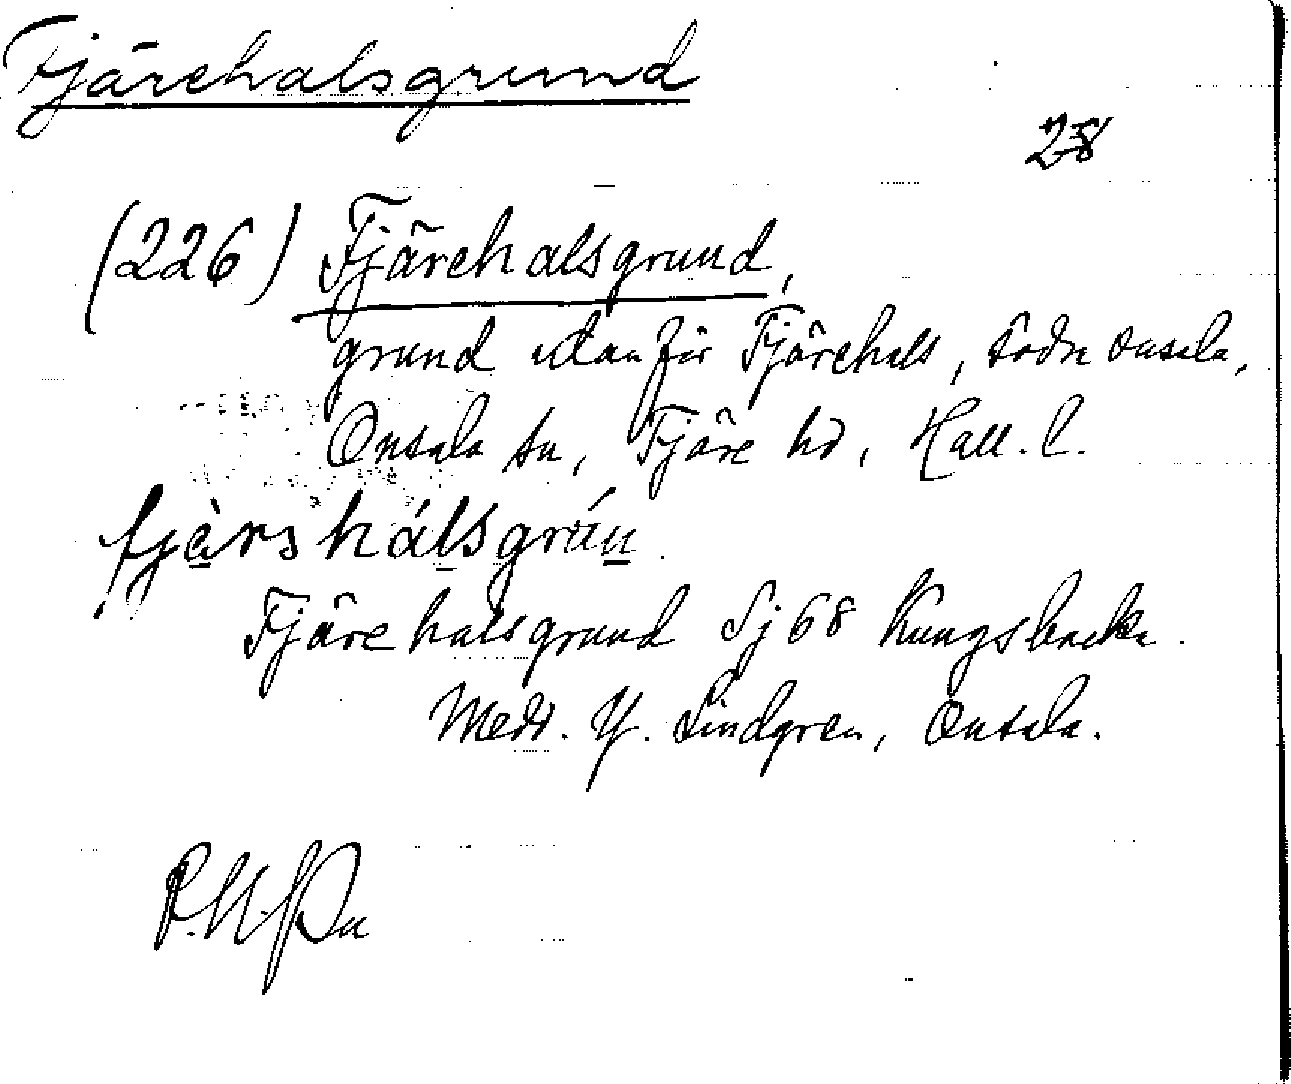 Fjärehalsgrund
28
(226) Fjärehalsgrund,
grund utanför Fjärehals, södra Onsala,
Onsala sn, Fjäre hd, Hall. l.
fjàrs hálsgrún
Fjärehalsgrund Sj 68 Kungsbacka.
Medd. Y. Lindgren, Onsala.